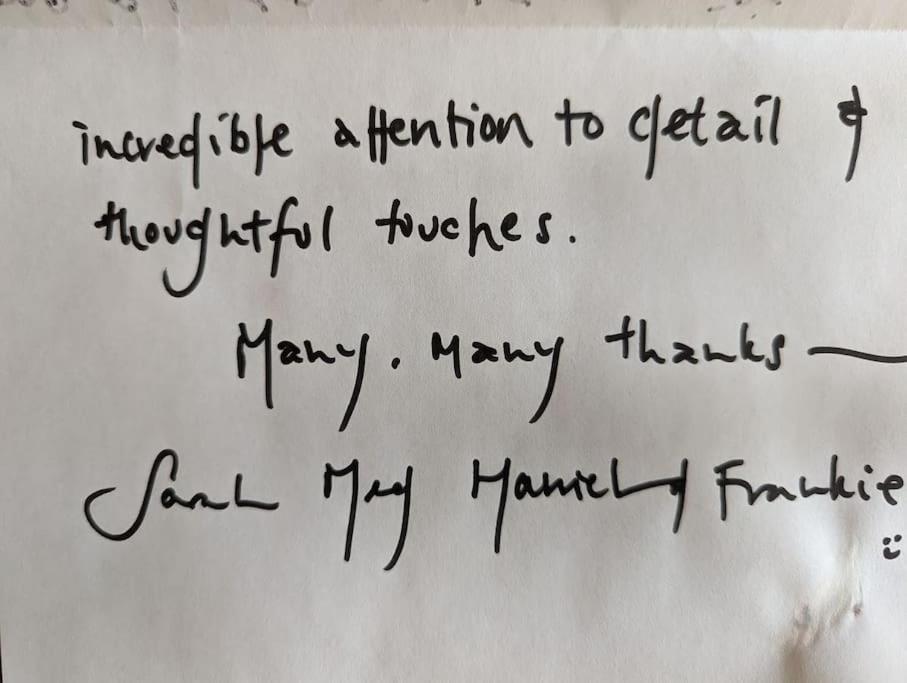 incredible attention to detail &
thoughtful touches.
Many. Many thanks —
Sarah Meg & Frankie
:)